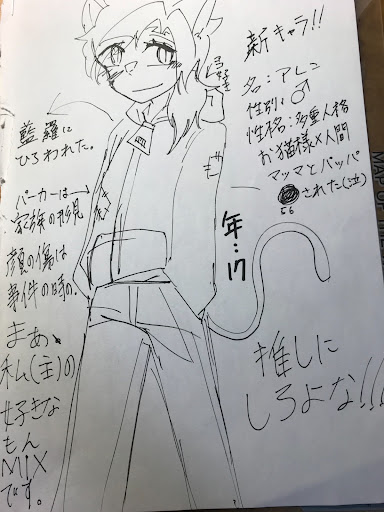 新キャラ!!
名:アレン
性別:♂
性格:多重人格
お猫様×人間
マッマとパッパ
●された(泣)
年…17
推しに
しろよな!!!
藍羅に
ひろわれた。
パーカーは→
家族の形見
顔の傷は
事件の時の。
まぁ、
私(主)の
好きな
もん
MIX
です。